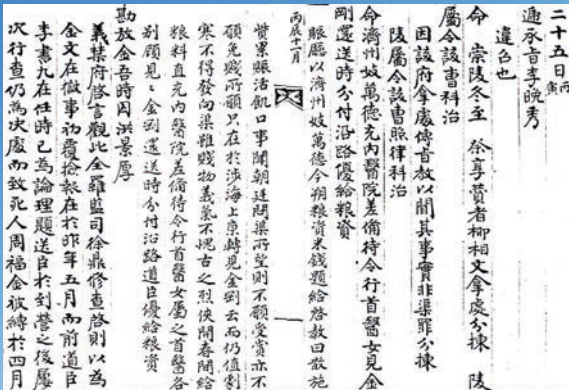 二十五日丙寅
遞承旨李晩秀
違召也
命 崇陵冬至 祭享賫者柳相文拿處分揀 陵
屬令該曹科治
因該府拿處傳旨敎以聞其事實非渠罪分揀
陵屬令該曹照律科治
命濟州妓萬德充內醫院差備待令行首醫女見金
剛還送時分付沿路優給粮資
賑廳以濟州妓萬德今朔粮資米錢題給啓敎曰散施
貲累賑活飢口事聞朝廷問渠所望則不願受賞亦不
願免賤所願只在於涉海上京轉見金剛云而仍値割
寒不得發向渠雖賤物義氣不愧古之烈俠開春間給
粮料直充內醫院差備待令行首醫女屬之首醫各
別顧見見金剛還送時分付沿路道臣優給粮資
丙辰十一月
勘放金吾時囚洪景厚
義禁府啓言觀此全羅監司徐鼎修査啓則以爲
金文在獄事初覆檢報在於昨年五月而前道臣
李書九在任時已爲論理題送臣於到營之後屢
次行査仍爲決處而致死人周福金被縛於四月